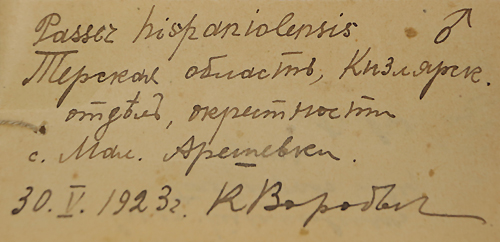 Passer hispaniolensis ♂
Терская область, Кизлярск.
отдѣлъ, окрестности
с. Мал. Арешевки.
30.V.1923г. К Воробьев